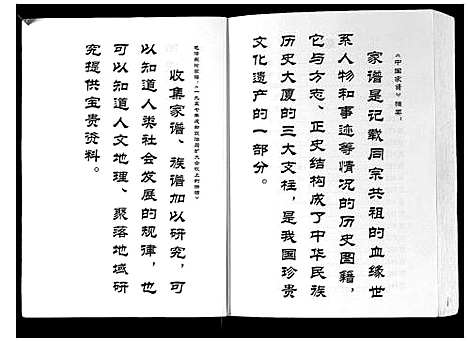 《中国家谱》摘要：
家谱是记载同宗共祖的血缘世
系人物和事迹等情况的历史图籍，
它与方志、正史结构成了中华民族
历史大厦的三大支柱，是我国珍贵
文化遗产的一部分。
收集家谱、族谱加以研究，可
以知道人类社会发展的规律，也
可以知道人文地理、聚落地域研
究提供宝贵资料。